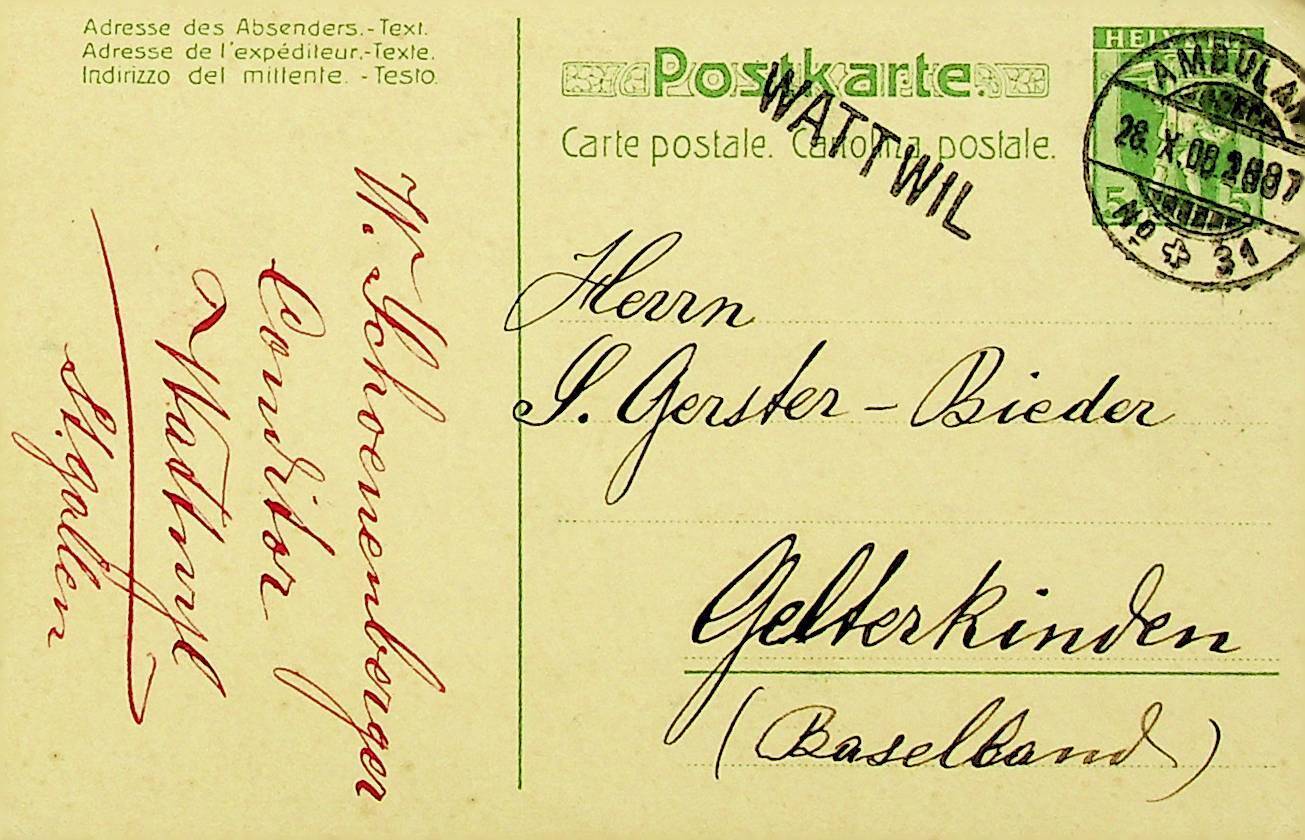 Adresse des Absenders.-Text.
Adresse de l'expéditeur.-Texte.
Indirizzo del mittente. - Testo.
Postkarte.
Carte postale. Cartolina postale.
WATTWIL
HELVETIA
5 5
AMBULANT
28. X.08
No 31
W. Schoenenberger
Conditor
Wattwyl
St. gallen
Herrn
S. Gerster - Bieder
Gelterkinden
(Baselland)